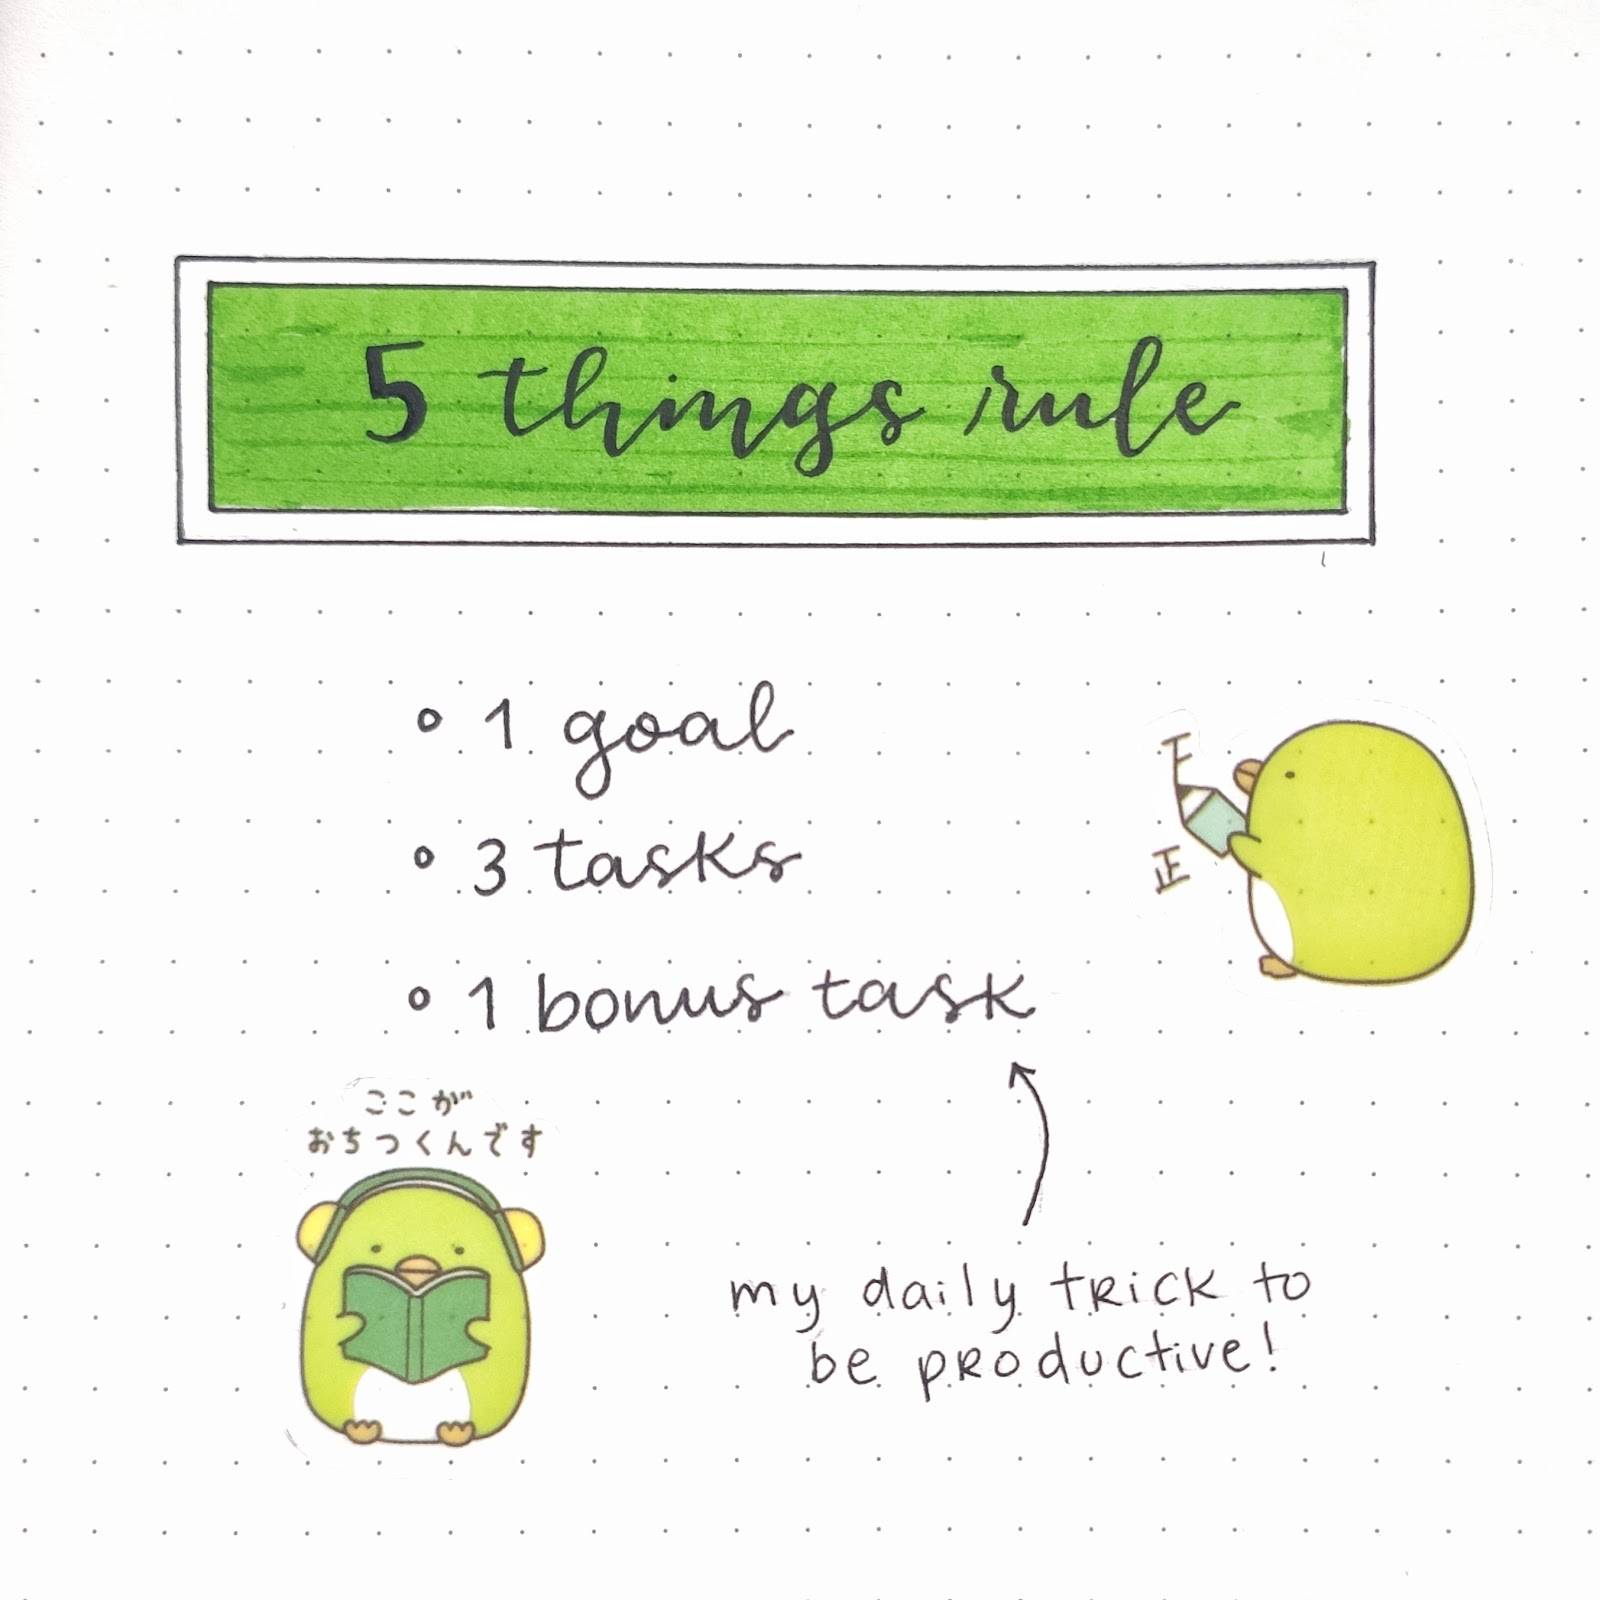 5 things rule
1 goal
3 tasks
1 bonus task
正
ここが
おちつくんです
my daily trick to
be productive!